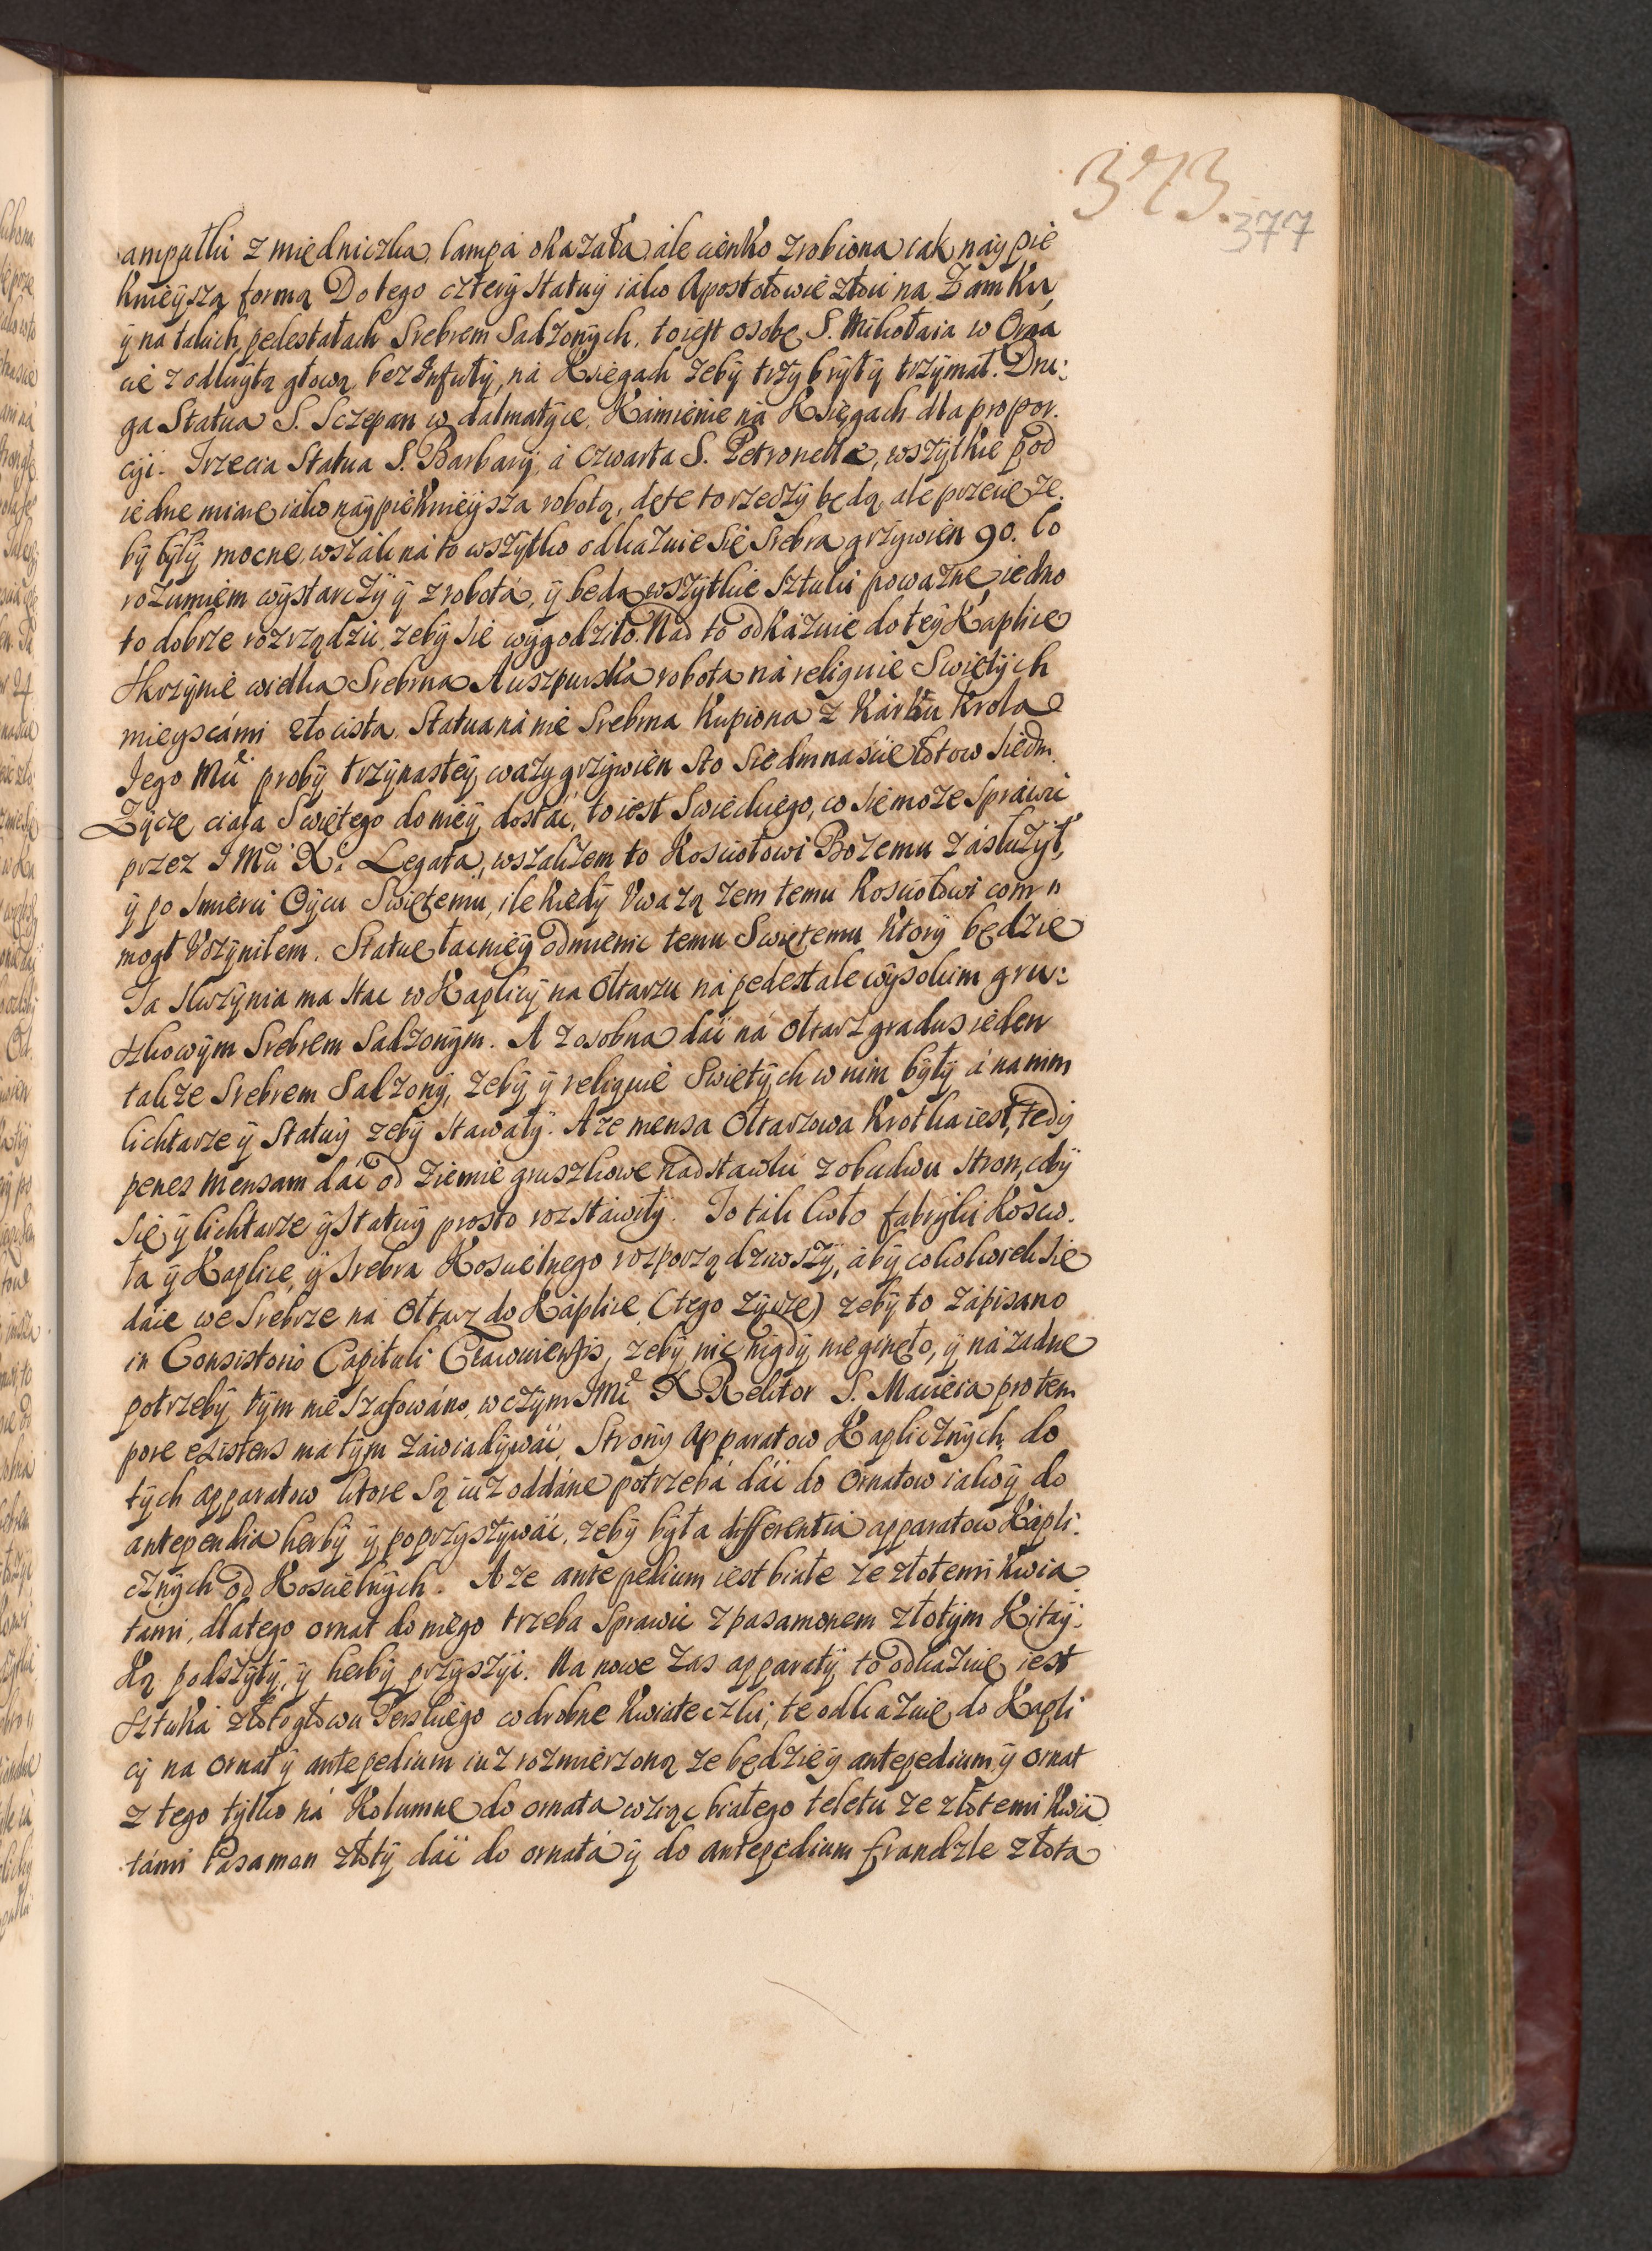 373.
377
ampułki z miedniczką, lampa okazała, ale cienko zrobiona iak naypię
knieyszą formą Do tego cztery statuy iako Apostołowie złoci na Zamku,
ÿ na takich pedestałach Srebrem Sadzonÿch, to iest osobę S. Mikołaia w Orna
cie z odkrÿtą głową bez Infułÿ, na Księgach zebÿ trzÿ brÿłÿ trzÿmał. Dru:
ga Statua S. Sczepan w dalmatÿce, Kamienie na Księgach dla propor.
cÿi. Trzecia Statua S. Barbarÿ, a Czwarta S. Petronelle, wszÿtkie pod
iedne miarę iako naÿpięknieÿszą robotą, dęte to rzeczÿ będą, ale przecię ze
bÿ bÿłÿ mocne, wszak na to wszÿtko odkazuie się Srebra grzÿwien 90. Co
rozumiem wÿstarczÿ ÿ z robotą, ÿ bedą wszÿtkie Sztuki poważne, iedno
to dobrze rozrządzic, zebÿ się wÿgodziło. Nad to odkazuie do teÿ Kaplice
skrzÿnię wielką Srebrną Auszpurską robotą na reliquie Swiętÿch
mieyscámi złocistą. Statua na niè Srebrna Kupiona z Kárku Krola
Jego Mci probÿ trzÿnasteÿ, wazÿ grzÿwien sto siedmnascie łotow siedm.
Zÿczę ciała Swiętego do nieÿ dostać, to iest Swieckiego, co się może spráwić
przez JMci X. Legata, wszakzem to Kosciołowi Bozemu zásłużÿł,
ÿ po Smierci Oÿcu Swiętemu, ile kiedÿ Uwazą zem temu Kosciołowi com
mogł Uczÿniłem. Statuę łacnieÿ odmienic temu Swiętemu ktorÿ będzie
Ta Skrzÿnia ma stac w Kaplicÿ na Ołtarzu na pedestale wÿsokim gru:
szkowÿm Srebrem Sadzonÿm. A z osobna dáć ná Ołtarz gradus ieden
takze Srebrem Sadzonÿ, zebÿ ÿ reliquie Swiętÿch w nim bÿłÿ á na nim
lichtarze ÿ Statuÿ zebÿ stawałÿ. A ze mensa Ołtarzowa krotka iest, tedÿ
penes mensam dáć od ziemie gruszkowe nadstawki z obudwu stron, zebÿ
się ÿ lichtarze ÿ Statuÿ prosto rozstawiłÿ. To tak koło fabrÿki koscio.
ła ÿ Kaplice, ÿ Srebra Koscielnego rozporządziwszÿ, abÿ cokolwiek się
dáie we Srebrze na Ołtarz do Káplice (tego zÿczę) zebÿ to zápisano
in Consistorio Capituli Cracouiensis, zebÿ nic nigdÿ nie ginęło, ÿ ná zadne
potrzebÿ tÿm nie szafowáno, w czÿm JMć X Rektor S. Macieia pro tem
pore existens ma tÿm záwiadÿwáć. Stronÿ Apparatow Kaplicznÿch, do
tÿch apparatow ktore są iuż oddáne potrzebá dáć do Ornatow iakoÿ do
antependia herbÿ ÿ poprzÿszÿwáć, zebÿ bÿła differentia apparatow Kápli:
cznÿch od Koscielnÿch. A ze antepedium iest białe ze złotemi kwia
tami, dlatego ornat do niego trzeba Sprawic z pasamonem złotÿm Kitaÿ:
ką podszÿtÿ, ÿ herbÿ przÿszÿć. Na nowe zas apparatÿ to odkazuię iest
sztuká złotogłowu Perskiego w drobne kwiateczki, te odkazuię do Kapli
cÿ na ornat ÿ antepedium iuż rozmierzoną ze będzie ÿ antepedium ÿ ornat
z tego tÿlko ná Kolumnę do ornata wziąc białego teletu ze złotemi kwia
támi Pasaman złotÿ dáć do ornatá ÿ do antepedium frandzle złotą